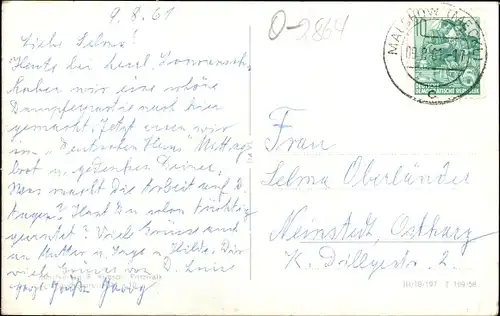 9.8.61
O-2864
Liebe Selma!
Heute bei herrl.
haben wir eine schöne
Dampferpartie nach hier
gemacht. Jetzt essen wir
im "Deutschen Haus" Mittag
brot u. gedenken Deiner.
Was macht die Arbeit auf D.
Augen? Hast Du schon tüchtig
geerntet? Viele Grüsse auch
an Mutter u. Hilde. Dir
viele Grüsse von D.
Georg
MALCHOW (MECKL)
09.8.61
c
10
DEUTSCHE
DEMOKRATISCHE REPUBLIK
Frau
Selma Oberländer
Neinstedt, Ostharz
K. 2.